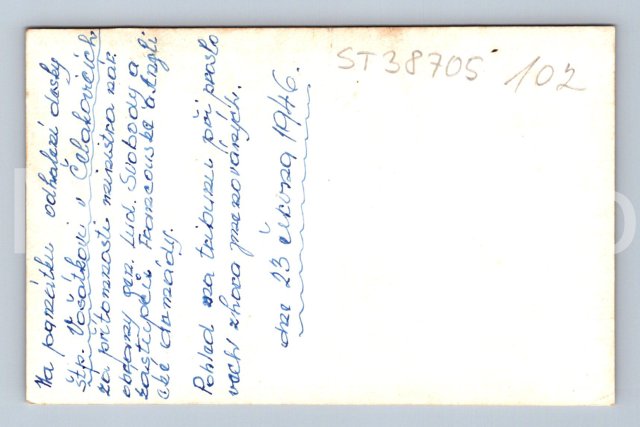 Na památku odhalení desky
štp. Vošátkovi v Čelakovicích
za přítomnosti ministra nár.
obrany gen. Lud. Svobody a
zástupců Francouské a Angli
cké armády.
Pohled na tribunu při proslo
vech shora jmenovaných.
dne 23 června 1946.
ST38705 102